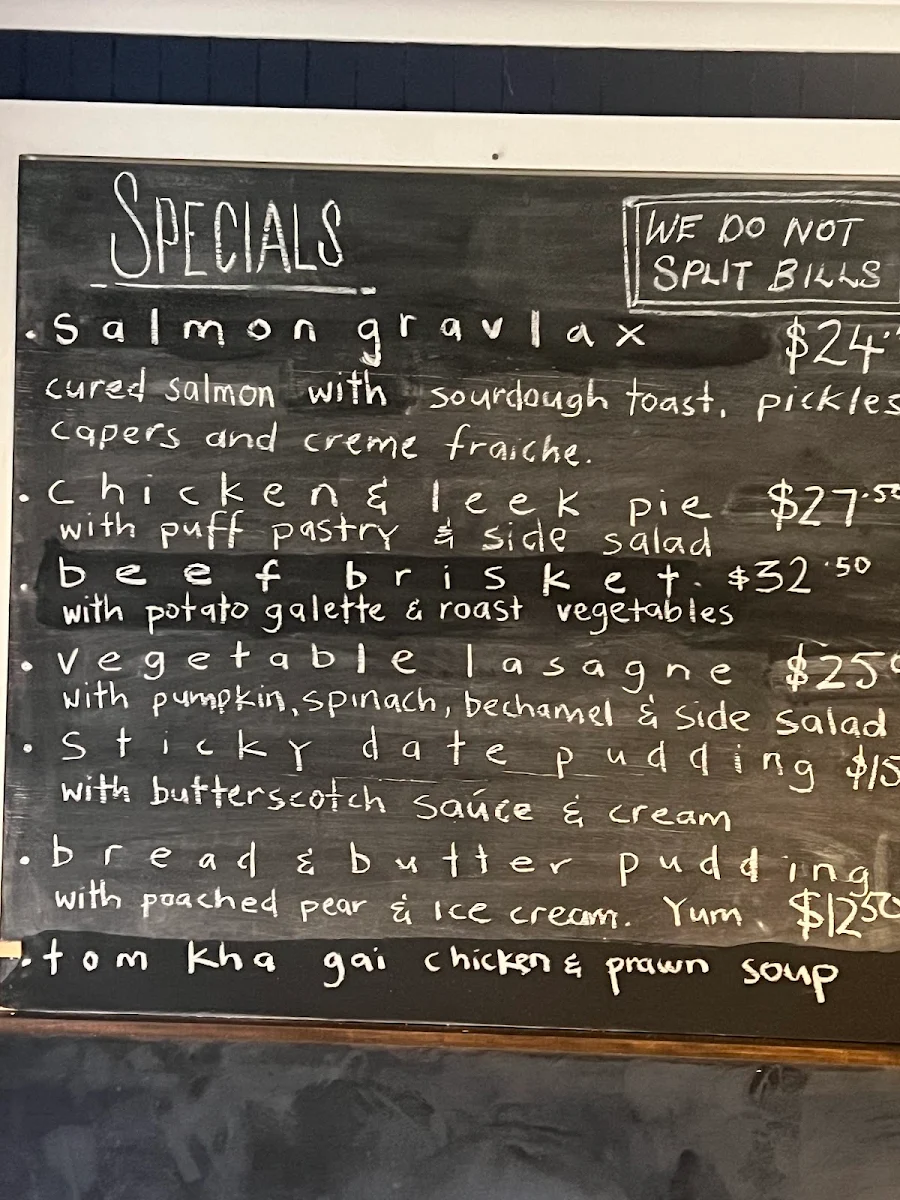 SPECIALS
WE DO NOT
SPLIT BILLS
• salmon gravlax $24
cured salmon with sourdough toast, pickles
capers and creme fraiche.
• chicken & leek pie $27.50
with puff pastry & side salad
• beef brisket. $32.50
with potato galette & roast vegetables
• vegetable lasagne $25
with pumpkin, spinach, bechamel & side salad
• sticky date pudding $15
with butterscotch sauce & cream
• bread & butter pudding
with poached pear & ice cream. Yum. $12.50
• tom kha gai chicken & prawn soup